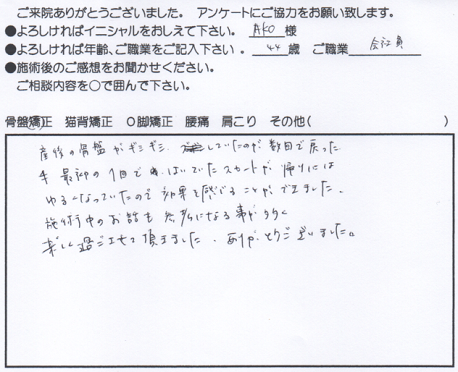 ご来院ありがとうございました。 アンケートにご協力をお願い致します。
●よろしければイニシャルをおしえて下さい。 AKO 様
●よろしければ年齢、ご職業をご記入下さい。 44 歳 ご職業 会社員
●施術後のご感想をお聞かせください。
ご相談内容を○で囲んで下さい。
骨盤矯正 猫背矯正 O脚矯正 腰痛 肩こり その他( )
産後の骨盤がギシギシ していたのが数回で戻った
最初の1回で はいていたスカートが帰りには
ゆるくなっていたので効果を感じることができました。
施術中のお話も 参考になる事が多く
楽しく過ごさせて頂きました。ありがとうございました。